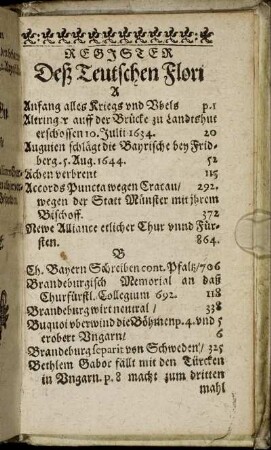 REGISTER
Deß Teutschen Flori
A
Anfang alles Kriegs vnd Vbels p.1
Altring r auff der Brücke zu Landtshut
erschossen 10. Julii 1634. 20
Anguien schlägt die Bayrische bey Frid-
berg. 5. Aug. 1644. 52
Achen verbrent 115
Accords Puncta wegen Cracau/ 292.
wegen der Statt Münster mit jhrem
Bischoff. 372
Newe Alliance etlicher Chur vnnd Für-
sten. 864.
B
Ch. Bayern Schreiben cont. Pfaltz/706
Brandeburgisch Memorial an daß
Churfürstl. Collegium 692. 118
Brandeburg wirt neutral / 338
Buquoi vberwind die Böhmen p. 4. vnd 5
erobert Vngarn/ 6
Brandeburg separit von Schweden/ 325
Bethlem Gabor fällt mit den Türcken
in Vngarn. p. 8 macht zum dritten
mahl